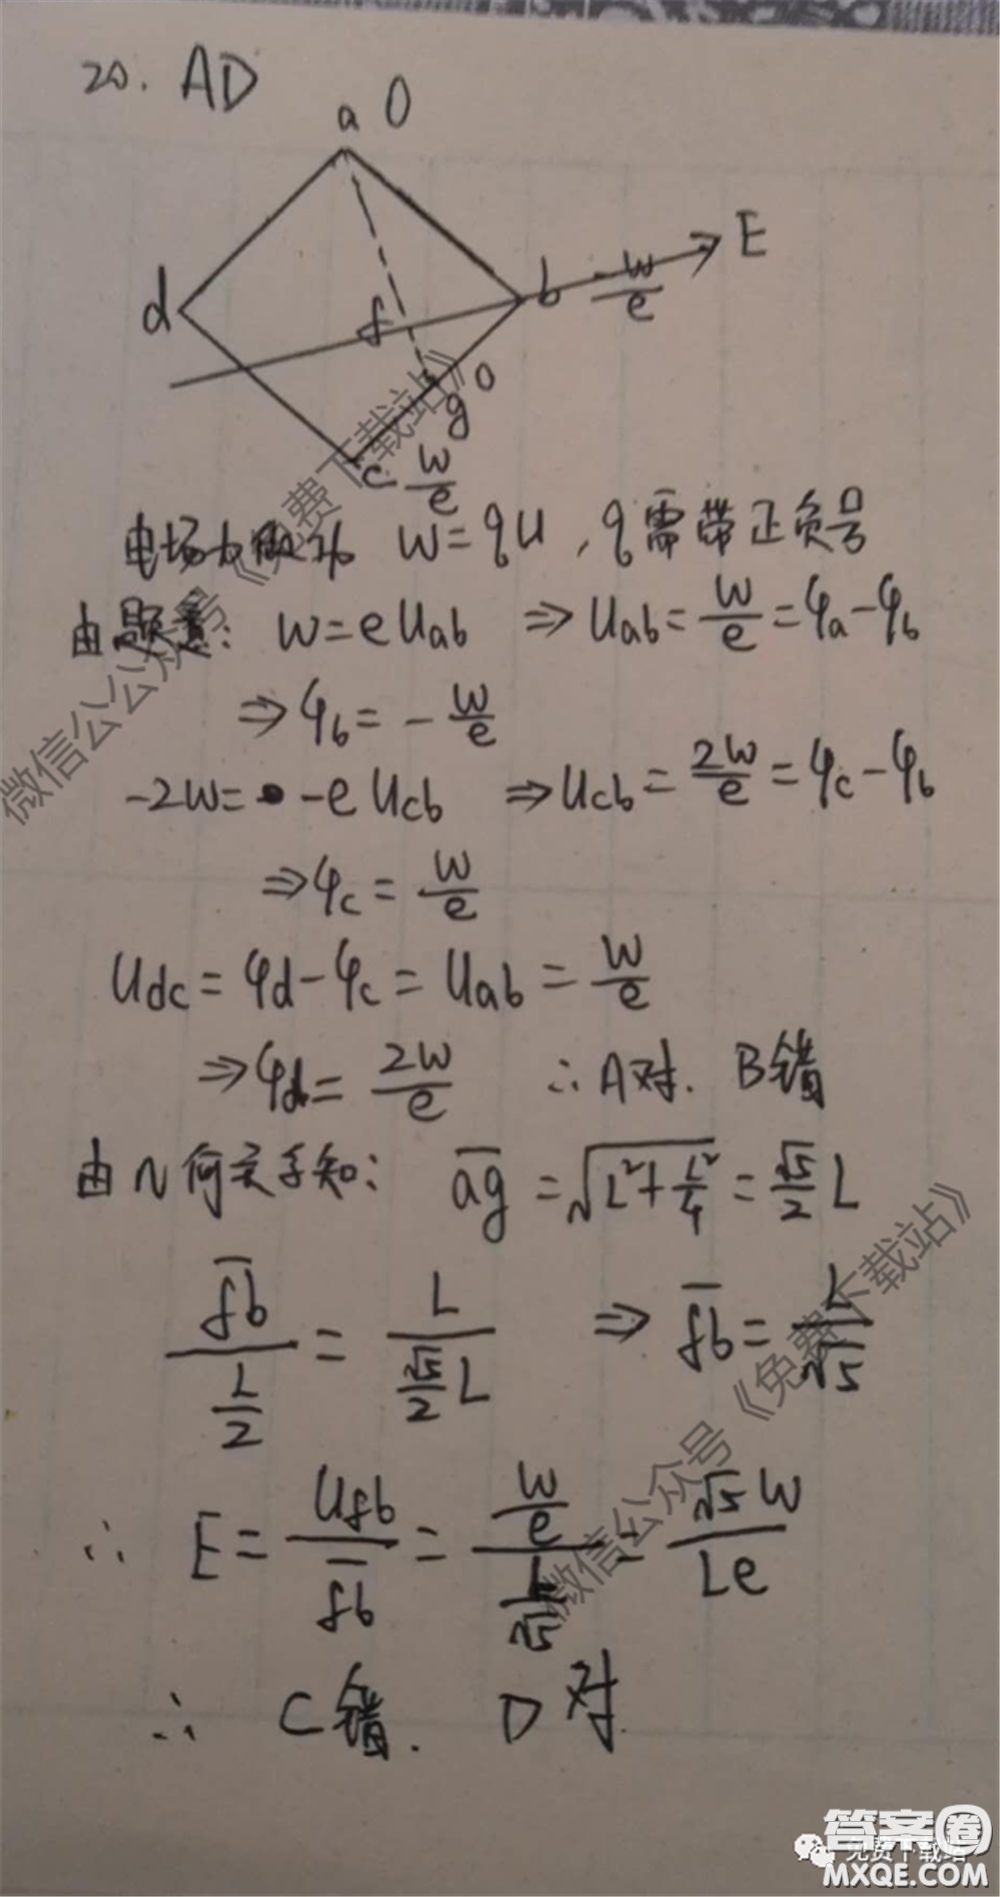 20. AD
a 0
E
d
b -W/e
f
g 0
c W/e
电场力做功 W=qU，q需带正负号
由题意: W=eUab ⇒ Uab=W/e=φa-φb
⇒φb=-W/e
-2W=-eUcb ⇒Ucb=2W/e=φc-φb
⇒φc=W/e
Udc=φd-φc=Uab=W/e
⇒φd=2W/e ∴A对. B错
由几何关系知: ag=√(L²+L²/4)=√5/2 L
fb/(L/2)=L/(√5/2 L) ⇒ fb=L/√5
∴ E=Ufb/fb=(W/e)/(L/√5)=√5W/Le
∴ C错. D对.
微信公众号《免费下载站》
微信公众号《免费下载站》
答案圈
免费下载站
MXQE.COM